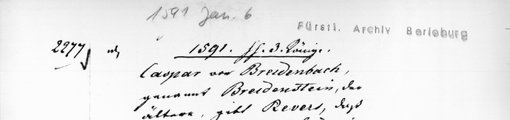 1591 Jan. 6
Fürstl. Archiv Berleburg
2277
1591. ff. 3. Könige.
Caspar von Breidenbach,
genannt Breidenstein, der
ältere, gibt Revers, daß